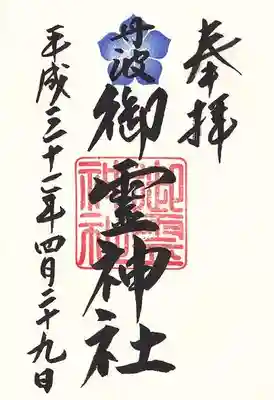 奉拝
丹波
御霊神社
御霊神社
平成三十一年四月二十九日